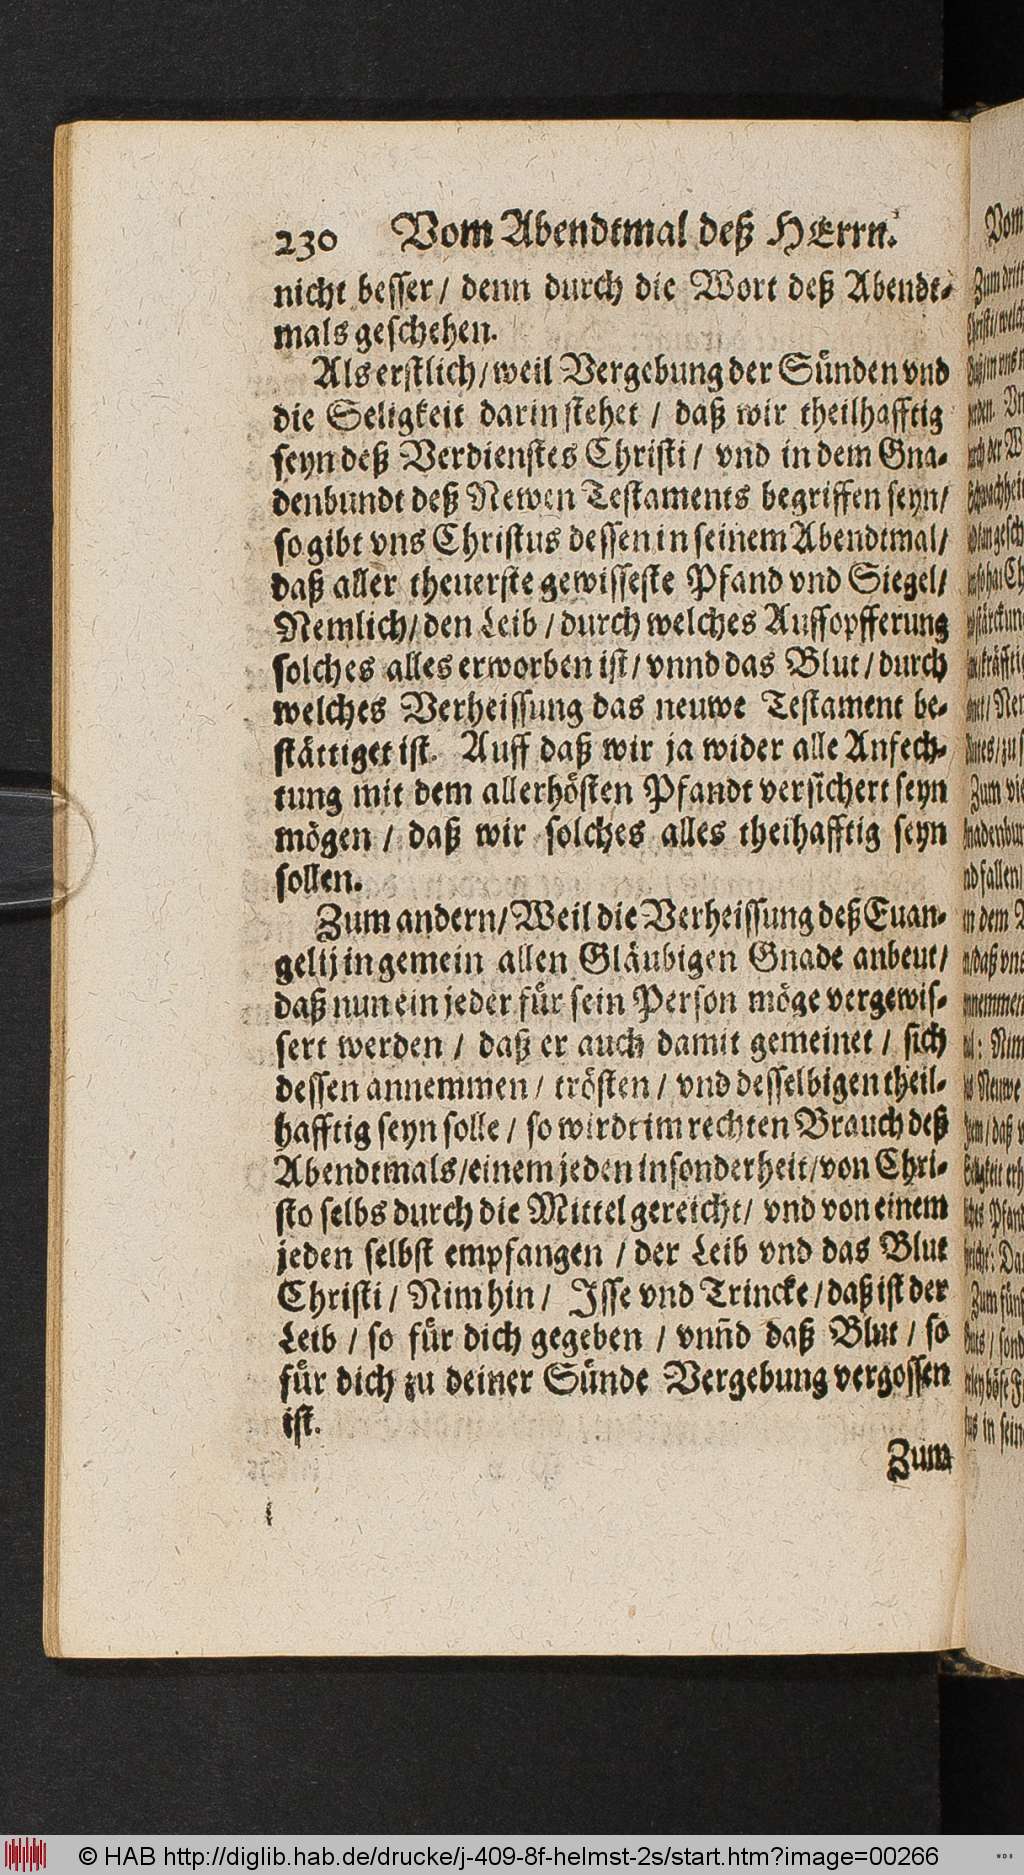 230 Vom Abendtmal deß HErrn.
nicht besser / denn durch die Wort deß Abendt-
mals geschehen.
Als erstlich / weil Vergebung der Sünden vnd
die Seligkeit darin stehet / daß wir theilhafftig
seyn deß Verdienstes Christi / vnd in dem Gna-
denbundt deß Newen Testaments begriffen seyn /
so gibt vns Christus dessen in seinem Abendtmal /
daß aller theuerste gewisseste Pfand vnd Siegel /
Nemlich / den Leib / durch welches Auffopfferung
solches alles erworben ist / vnnd das Blut / durch
welches Verheissung das neuwe Testament be-
stättiget ist. Auff daß wir ja wider alle Anfech-
tung mit dem allerhösten Pfandt versichert seyn
mögen / daß wir solches alles theihafftig seyn
sollen.
Zum andern / Weil die Verheissung deß Euan-
gelij in gemein allen Gläubigen Gnade anbeut /
daß nun ein jeder für sein Person möge vergewis-
sert werden / daß er auch damit gemeinet / sich
dessen annemmen / trösten / vnd desselbigen theil-
hafftig seyn solle / so wirdt im rechten Brauch deß
Abendtmals / einem jeden insonderheit / von Chri-
sto selbs durch die Mittel gereicht / vnd von einem
jeden selbst empfangen / der Leib vnd das Blut
Christi / Nim hin / Isse vnd Trincke / daß ist der
Leib / so für dich gegeben / vnn̄d daß Blut / so
für dich zu deiner Sünde Vergebung vergossen
ist.
Zum
© HAB http://diglib.hab.de/drucke/j-409-8f-helmst-2s/start.htm?image=00266